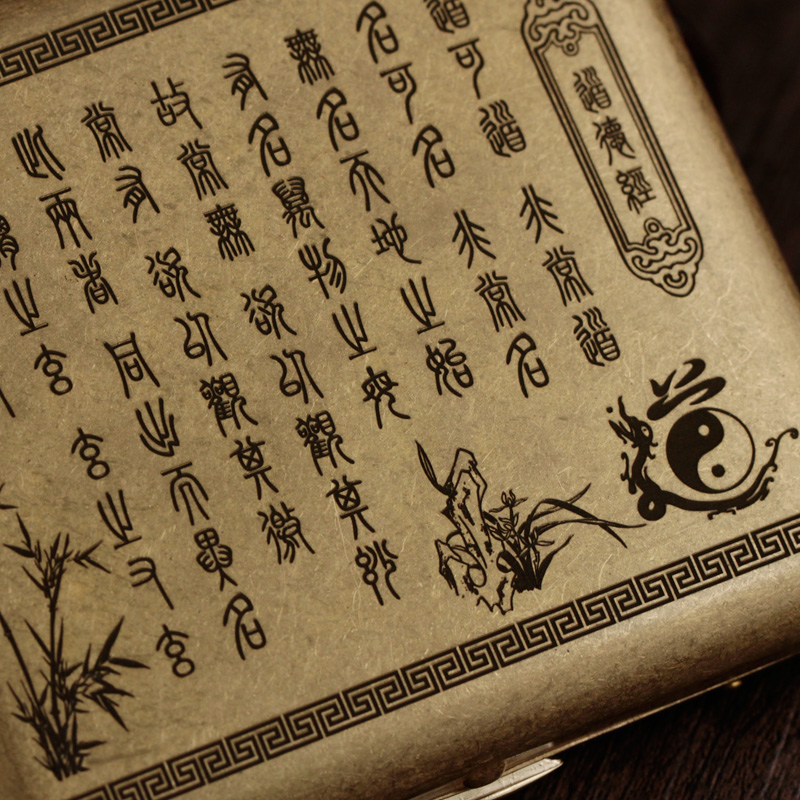 道德經
道可道非常道
名可名非常名
無名天地之始
有名萬物之母
故常無欲以觀其妙
常有欲以觀其徼
此兩者同出而異名
謂之玄玄之又玄